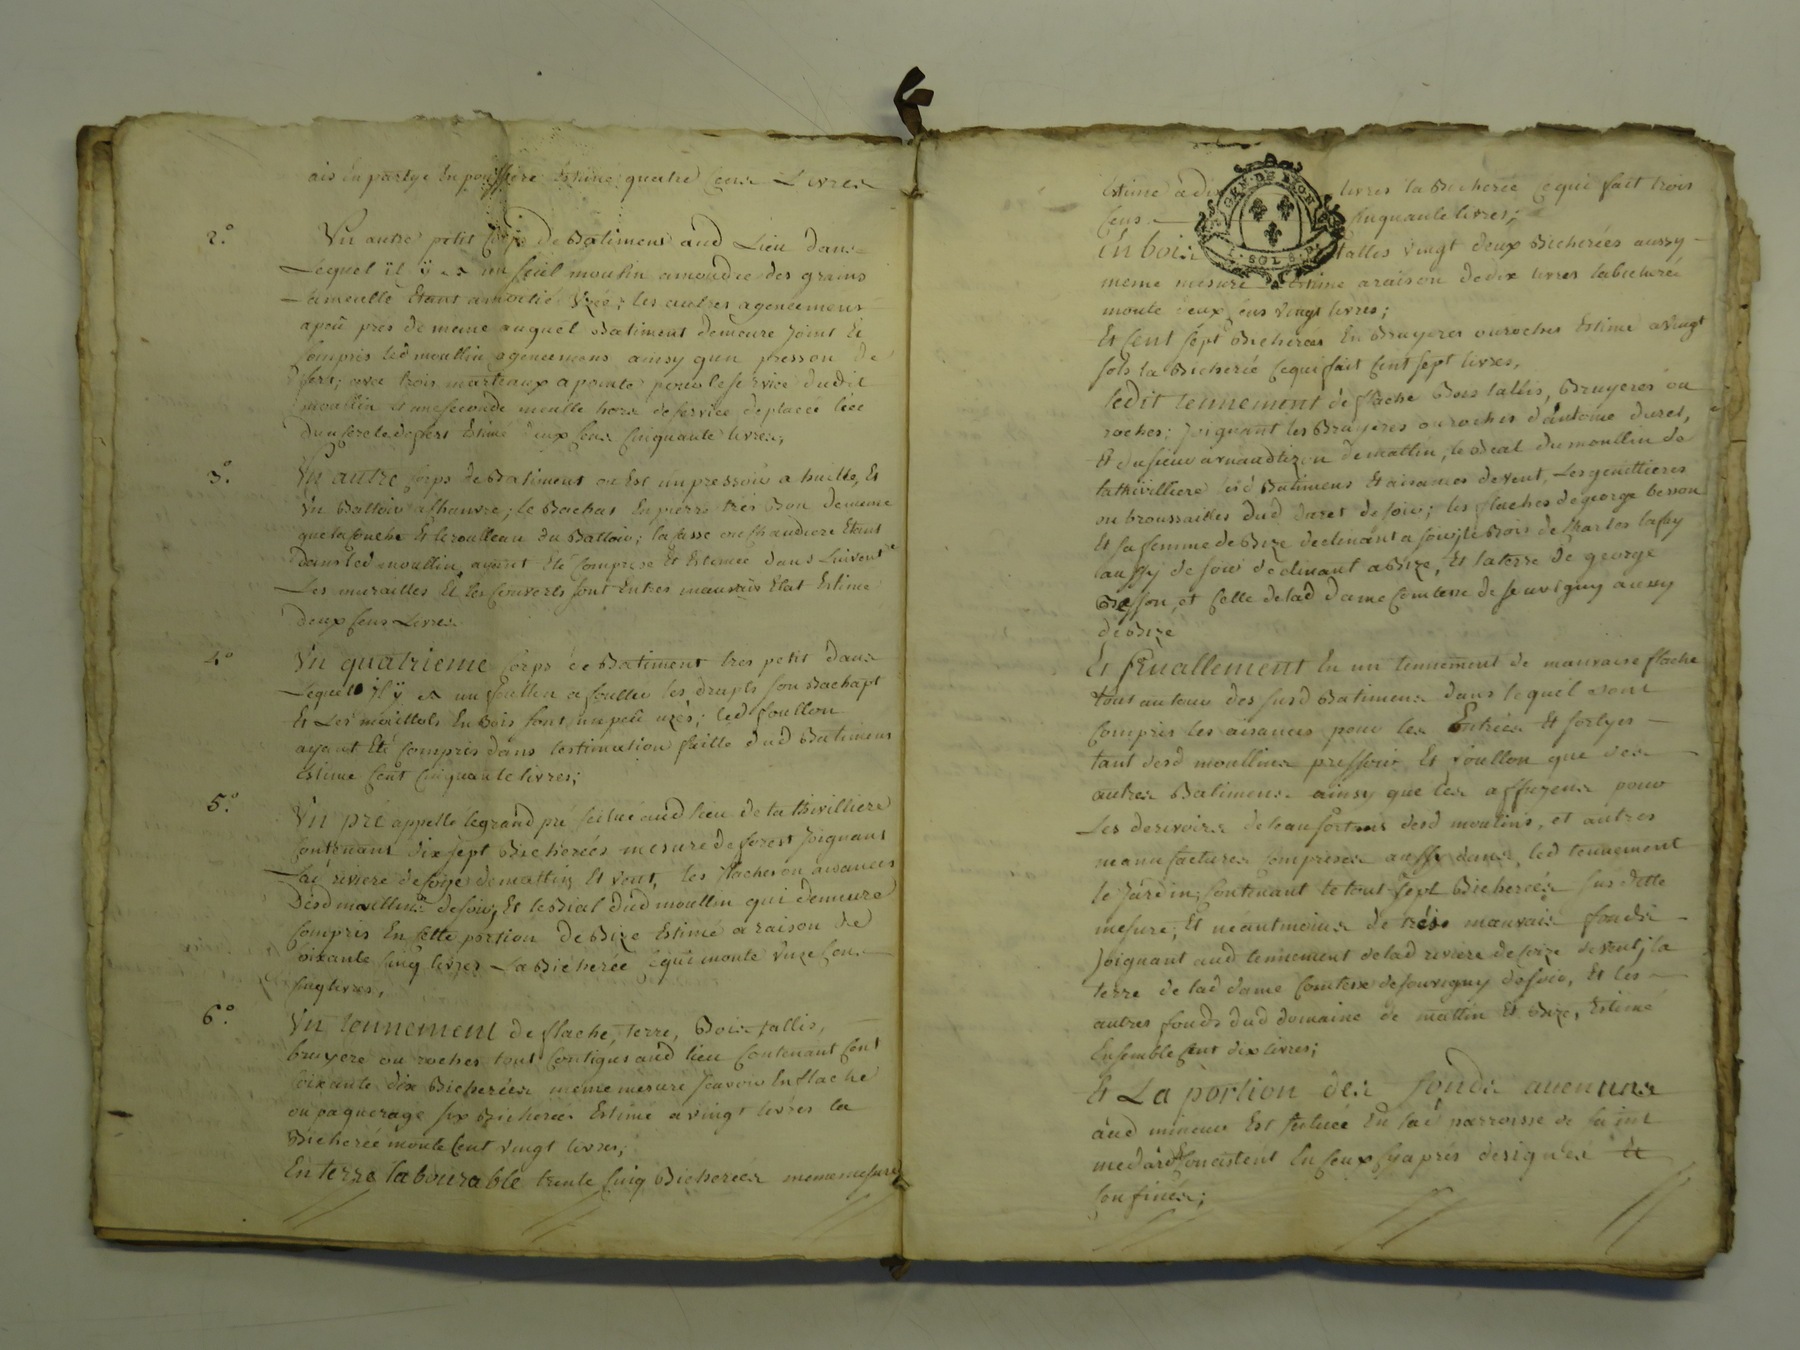 ais en partye en poussiere Estimé quatre Cens Livres
2.° Un autre petit Corps de Batiment aud Lieu dans
Lequel il y a un seul moulin amoudre des grains
la meulle Etant amoitié Uzée; les autres agencemens
apeû près de meme auquel Batiment demeure Joint Et
Compris led moullin agencemens ainsy qun presson de
fert; avec trois marteaux a pointe pour le service dudit
moullin et une seconde meulle hors de service deplacée liée
dun sercle de fert Estimé deux Cens Cinquante livres;
3.° Un autre Corps de Batiment ou Est un pressoir a huille, Et
Un Battoir a Chanvre; le Bachas En pierre trés Bon de meme
que la Couche Et le roulleau du Battoir; la casse ou Chaudiere Etant
dans led moullin, ayant Eté Comprise Et Estimée dans Linventre
Les murailles Et les Couverts sont En tres mauvais Etat Estimé
Deux Cens Livres
4.° Un quatrieme Corps de Batiment tres petit dans
Lequel il y a un foullon a fouller les drapts son Bachapt
Et Les maillots En Bois sont un peû uzés; led foullon
ayant Eté Compris dans lestimation faitte dud Batiment
Estimé Cent Cinquante livres;
5.° Un pré appellé le grand pré scitué aud lieu de la thivilliere
Contenant dix sept Bicherées mesure de forest Joignant
la riviere de matin Et vent, les flaches ou aisances
desd moullins de soir, Et le Bial dud moullin qui demeure
Compris En Cette portion de Bize Estimé a raison de
soixante Cinq livres La Bicherée Ce qui monte Unze Cens
Cinq livres,
6.° Un tennement de flache, terre, Bois tallis,
bruyere ou roches tout Contigus aud lieu Contenant Cent
soixante dix Bicherées meme mesure Scavoir En flache
ou paquerage six Bicherées Estimé a vingt livres la
Bicherée monte Cent vingt livres;
En terre labourable trente Cinq Bicherées meme mesure
Estimé a dix livres la Bicherée Ce qui fait trois
Cens Cinquante livres;
GEN. DE LYON
SOLS
En bois tallis vingt deux Bicherées aussy
meme mesure Estimé a raison de dix livres la bicherée
monte deux Cens vingt livres;
Et Cent sept Bicherées En Bruyeres ou roches Estimé a vingt
sols la Bicherée Ce qui fait Cent sept livres,
Ledit tennement de flache Bois tallis, Bruyeres ou
roches; Joignant les Bruyeres ou roches dantoine duret,
Et du sieur arnaud de mattin, le Beal du moullin de
la thivilliere Batimens Et aisances de vent, Les genittieres
ou broussailles dud duret de soir; les flaches de george besson
Et sa femme de Bize declinant a soir, le Bois de Charles
aussy de soir declinant a Bize, Et la terre de george
Besson, et Celle de lad dame Comtesse de souvigny aussy
de Bize
Et finallement En un tennement de mauvaise flache
tout autour des susd Batimens dans lequel sont
Compris les aisances pour les Entrées Et sortyes
tant desd moullins pressoir Et foullon que des
autres Batimens ainsy que les
Les derivoirs de leau sortans desd moulins, et autres
manufactures Comprises aussy dans led tennement
le Jardin, Contenant le tout sept Bicherées sus dette
mesure, Et néantmoins de très mauvais fonds
Joignant aud tennement de lad riviere de vent; la
terre de lad dame Comtesse de souvigny de soir, Et les
autres fonds dud domaine de mattin Et Bize, Estimé
Ensemble Cent dix livres;
Et La portion des fonds avenus
aud mineur Est scituée En lad parroisse de saint
medard Consistent En Ceux Cy aprés designés Et
Confinés;